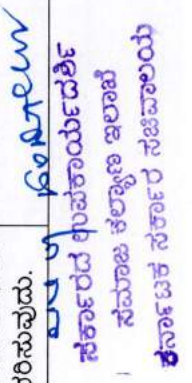 ರಿಸುವುದು.
ಸರ್ಕಾರದ ಉಪಕಾರ್ಯದರ್ಶಿ
ಸಮಾಜ ಕಲ್ಯಾಣ ಇಲಾಖೆ
ಕರ್ನಾಟಕ ಸರ್ಕಾರ ಸಚಿವಾಲಯ